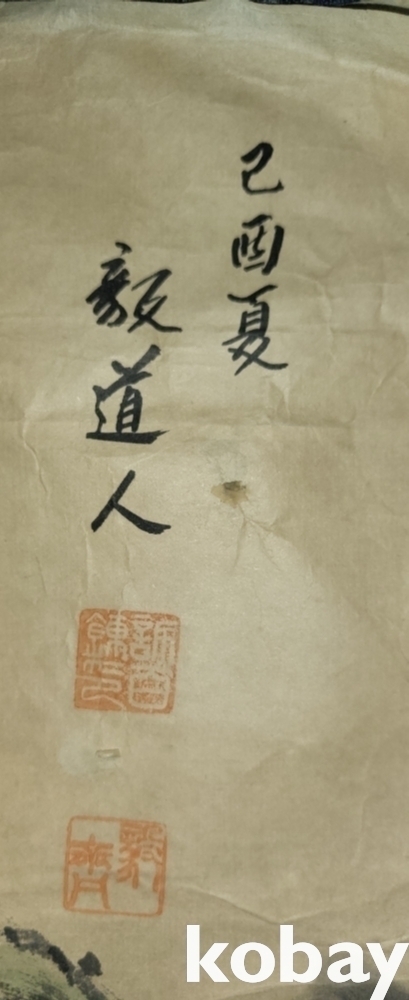 己酉夏
毅道人
毅齊
kobay